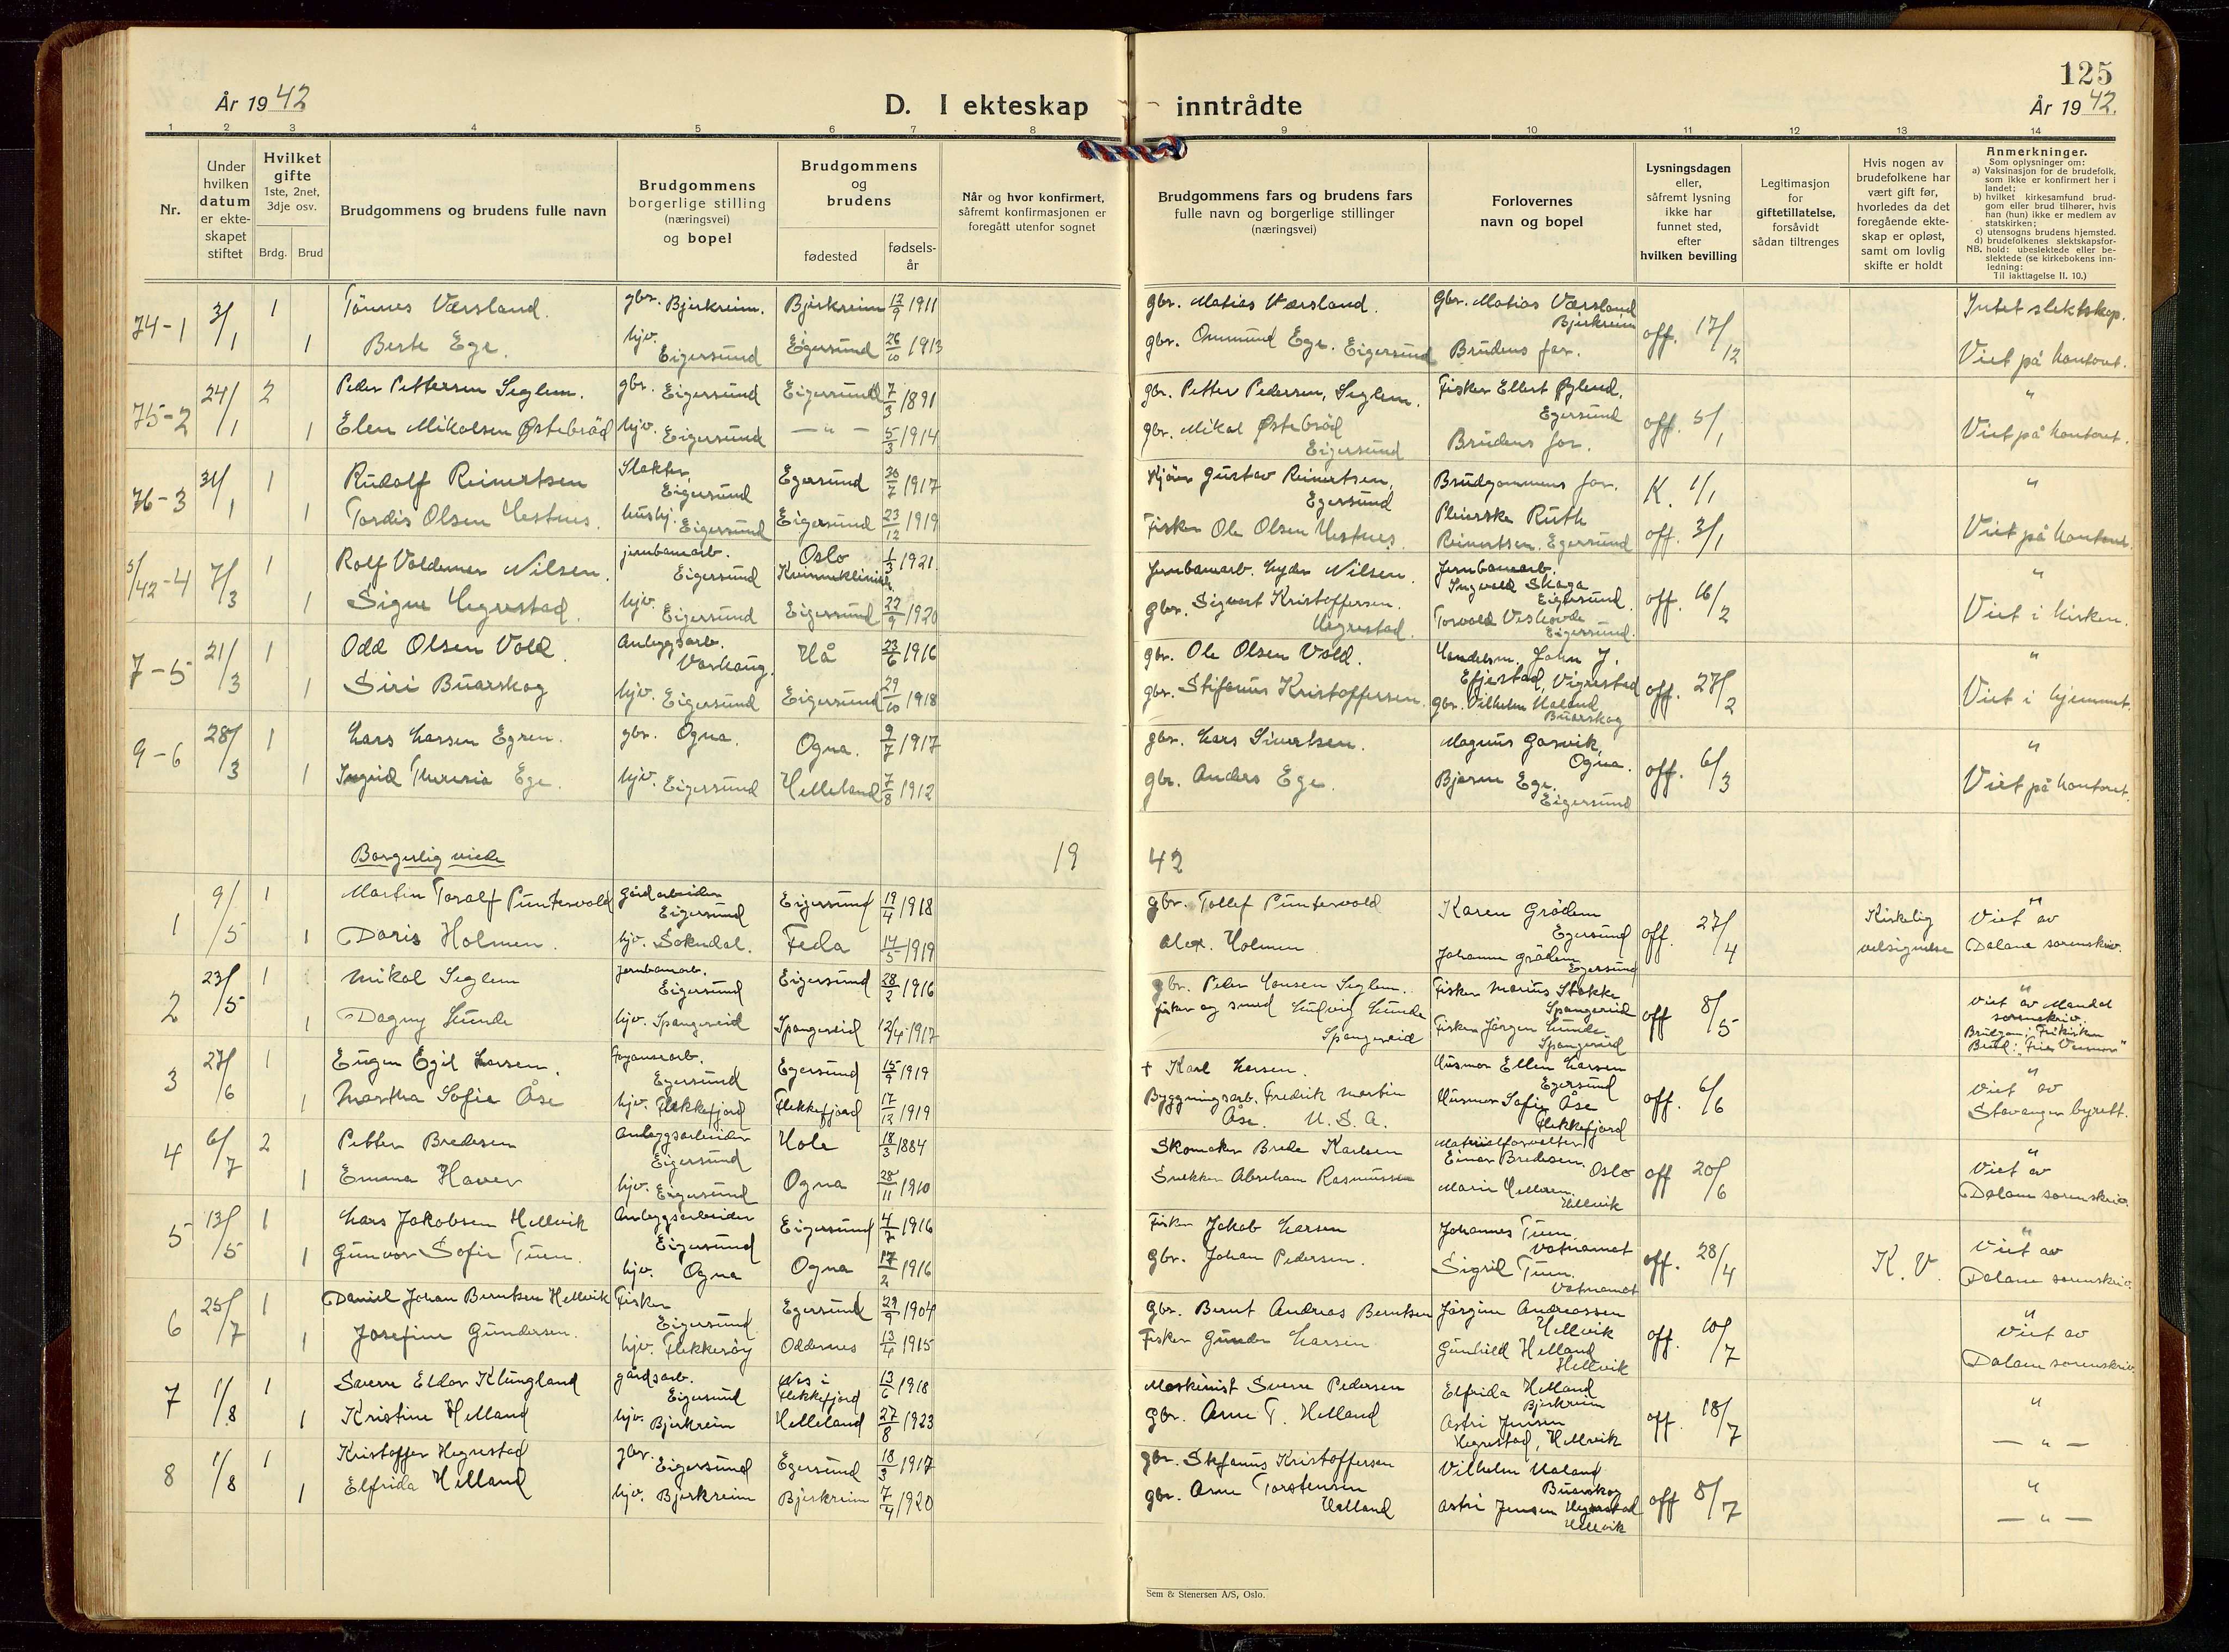 125
År 1942
D. I ekteskap - inntrådte
År 1942.
1 2 3 4 5 6 7 8 9 10 11 12 13 14
Nr.
Under hvilken datum er ekteskapet stiftet
Hvilket gifte
1ste, 2net, 3dje osv.
Brdg. Brud
Brudgommens og brudens fulle navn
Brudgommens borgerlige stilling (næringsvei) og bopel
Brudgommens og brudens
fødested
fødsels-år
Når og hvor konfirmert, såfremt konfirmasjonen er foregått utenfor sognet
Brudgommens fars og brudens fars fulle navn og borgerlige stillinger (næringsvei)
Forlovernes navn og bopel
Lysningsdagen eller, såfremt lysning ikke har funnet sted, efter hvilken bevilling
Legitimasjon for giftetillatelse, forsåvidt sådan tiltrenges
Hvis nogen av brudefolkene har vært gift før, hvorledes da det foregående ekteskap er opløst, samt om lovlig skifte er holdt
Anmerkninger.
Som oplysninger om:
a) Vaksinasjon for de brudefolk, som ikke er konfirmert her i landet;
b) hvilket kirkesamfund brudgom eller brud tilhører, hvis han (hun) ikke er medlem av statskirken;
c) utensogns brudens hjemsted.
d) brudefolkenes slektskapsforhold: ubeslektede eller beslektede (se kirkebokens innledning:
NB. Til iakttagelse II. 10.)
74-1 3/1 1 Tønnes Værsland. gbr. Bjerkreim. Bjerkreim 12/9 1911 gbr. Matias Værsland. Gbr. Matias Værsland Bjerkreim off. 17/12 Intet slektskap.
1 Berte Ege. hjv. Eigersund Eigersund 26/10 1913 gbr. Ommund Ege. Eigersund Brudens far. Viet på kontoret.
75-2 24/1 2 Peder Pettersen Seglem. gbr. Eigersund Eigersund 7/3 1891 gbr. Petter Pedersen, Seglem. Fisker Ellert Øglend, Egersund off. 5/1 "
1 Elen Mikalsen Østebrød hjv. Eigersund — " — 5/3 1914 gbr. Mikal Østebrød Eigersund Brudens far. Viet på kontoret.
76-3 31/1 1 Rudolf Reinertsen Slakter, Eigersund Egersund 20/7 1917 Gustav Reinertsen, Egersund Brudgommens far. K. 1/1 "
1 Tordis Olsen Hestnes. hushj. Eigersund Eigersund 23/12 1919 Fisker Ole Olsen Hestnes. Pleierske Ruth Reinertsen, Egersund off. 3/1 Viet på kontoret.
5/42-4 7/3 1 Rolf Valdemar Nilsen. jernbanearb. Eigersund Oslo Kvinneklinikk 1/3 1921 Jernbanearb. Lyder Nilsen. Jernbanearb. Ingvald Skaga Eigersund off. 16/2 "
1 Signe Hegrestad. hjv. Eigersund Eigersund 22/9 1920 Gbr. Sigvart Kristoffersen. Hegrestad. Torvald Veshovde Eigersund. Viet i kirken.
7-5 21/3 1 Odd Olsen Vold. Anleggsarb. Varhaug. Hå 23/6 1916 gbr. Ole Olsen Vold. Handelsm. John J. Efjestad, Vigrestad off. 27/2 "
1 Siri Buarskog hjv. Eigersund Eigersund 29/10 1918 gbr. Stefanus Kristoffersen. gbr. Vilhelm Haland Buarskog Viet i hjemmet.
9-6 28/3 1 Lars Larsen Egren. gbr. Ogna. Ogna. 9/7 1917 gbr. Lars Sivertsen. Magnus Gasvik, Ogna. off. 6/3 "
1 Ingrid Theresia Ege. hjv. Eigersund Helleland 7/8 1912 gbr. Anders Ege. Bjarne Ege. Eigersund Viet på kontoret.
Borgerlig viede 19 42
1 9/5 1 Martin Toralf Puntervold gårdarbeider Eigersund Eigersund 19/4 1918 gbr. Tollef Puntervold Karen Grødem Egersund off. 27/4 Kirkelig velsignelse " Viet av
1 Doris Holmen. hjv. Sokndal. Feda 14/5 1919 Alex. Holmen Johanne Grødem Egersund Dalane sorenskriv.
2 23/5 1 Mikal Seglem jernbanearb. Eigersund Eigersund 28/2 1916 gbr. Peder Hansen Seglem. Fisker Marius Stakke Spangereid off 8/5 " Viet av Mandal sorenskriv.
1 Dagny Lunde hjv. Spangereid Spangereid 12/4 1917 fisker og smed Ludvig Lunde Spangereid Fisker Jørgen Lunde. Spangereid Brudgom: Frikirken Brud: "Frie Venner"
3 27/6 1 Eugen Egil Larsen. Egersund Egersund 15/9 1919 + Karl Larsen. Husmor Ellen Larsen Egersund off. 6/6 " Viet av
1 Martha Sofie Åse hjv. Flekkefjord Flekkefjord 17/12 1919 Byggningsarb. Fredrik Martin Åse. U.S.A. Husmor Sofie Åse Flekkefjord Stavanger byrett.
4 6/7 2 Petter Bredesen Anleggsarbeider Eigersund Hole 18/3 1884 Skomaker Brede Karlsen Materialforvalter Einar Bredesen Oslo off 20/6 " Viet av
1 Emma Haver hjv. Eigersund Ogna 28/11 1910 Snekker Abraham Rasmussen Marie Hellvik Dalane sorenskriv.
5 13/5 1 Lars Jakobsen Hellvik Anleggsarbeider Eigersund Eigersund 4/7 1916 Fisker Jakob Larsen Johannes Tuen. Vatnamot off. 28/4 K. V. " Viet av
1 Gunvor Sofie Tuen. hjv. Ogna Ogna 17/2 1916 gbr. Johan Pedersen. Sigrid Tuen. Vatnamot Dalane sorenskriv.
6 25/7 1 Daniel Johan Berntsen Hellvik Fisker Eigersund Egersund 29/9 1904 Gbr. Bernt Andreas Berntsen Jørgine Andreassen Hellvik off. 10/7 " Viet av
1 Josefine Gundersen. hjv. Flekkerøy Oddernes 13/4 1915 Fisker Gunder Larsen Gunhild Helland Hellvik Dalane sorenskriv.
7 1/8 1 Sverre Eldar Klungland gårdsarb. Eigersund Nes i Flekkefjord 13/6 1918 Maskinist Sverre Pedersen Elfrida Helland Bjerkreim off. 18/7 "
1 Kristine Helland hjv. Bjerkreim Helleland 27/8 1923 gbr. Arne T. Helland Astri Jensen Hegrestad, Hellvik — " —
8 1/8 1 Kristoffer Hegrestad gbr. Eigersund Egersund 18/3 1917 gbr. Stefanus Kristoffersen Vilhelm Haland Buarskog off 8/7 "
1 Elfrida Helland hjv. Bjerkreim Bjerkreim 7/4 1920 gbr. Arne Torstensen Helland Astri Jensen Hegrestad Hellvik — " —
Sem & Stenersen A/S, Oslo.